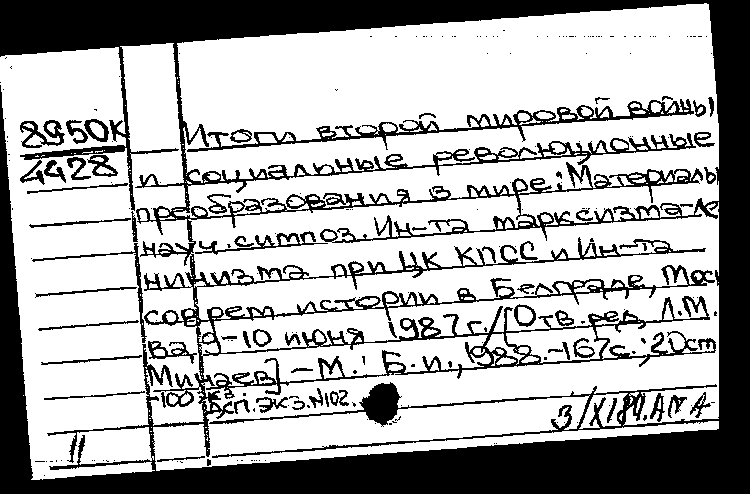 8950к
4428
Итоги второй мировой войны
и социальные революционные
преобразования в мире: Материалы
науч. симпоз. Ин-та марксизма-ле
нинизма при ЦК КПСС и Ин-та
соврем. истории в Белграде, Моск
ва, 9-10 июня 1987 г. / [Отв. ред. Л.М.
Минаев] - М.: Б.и., 1988. - 167с.; 20см
-100 экз. Дсп. Экз. №102.
11